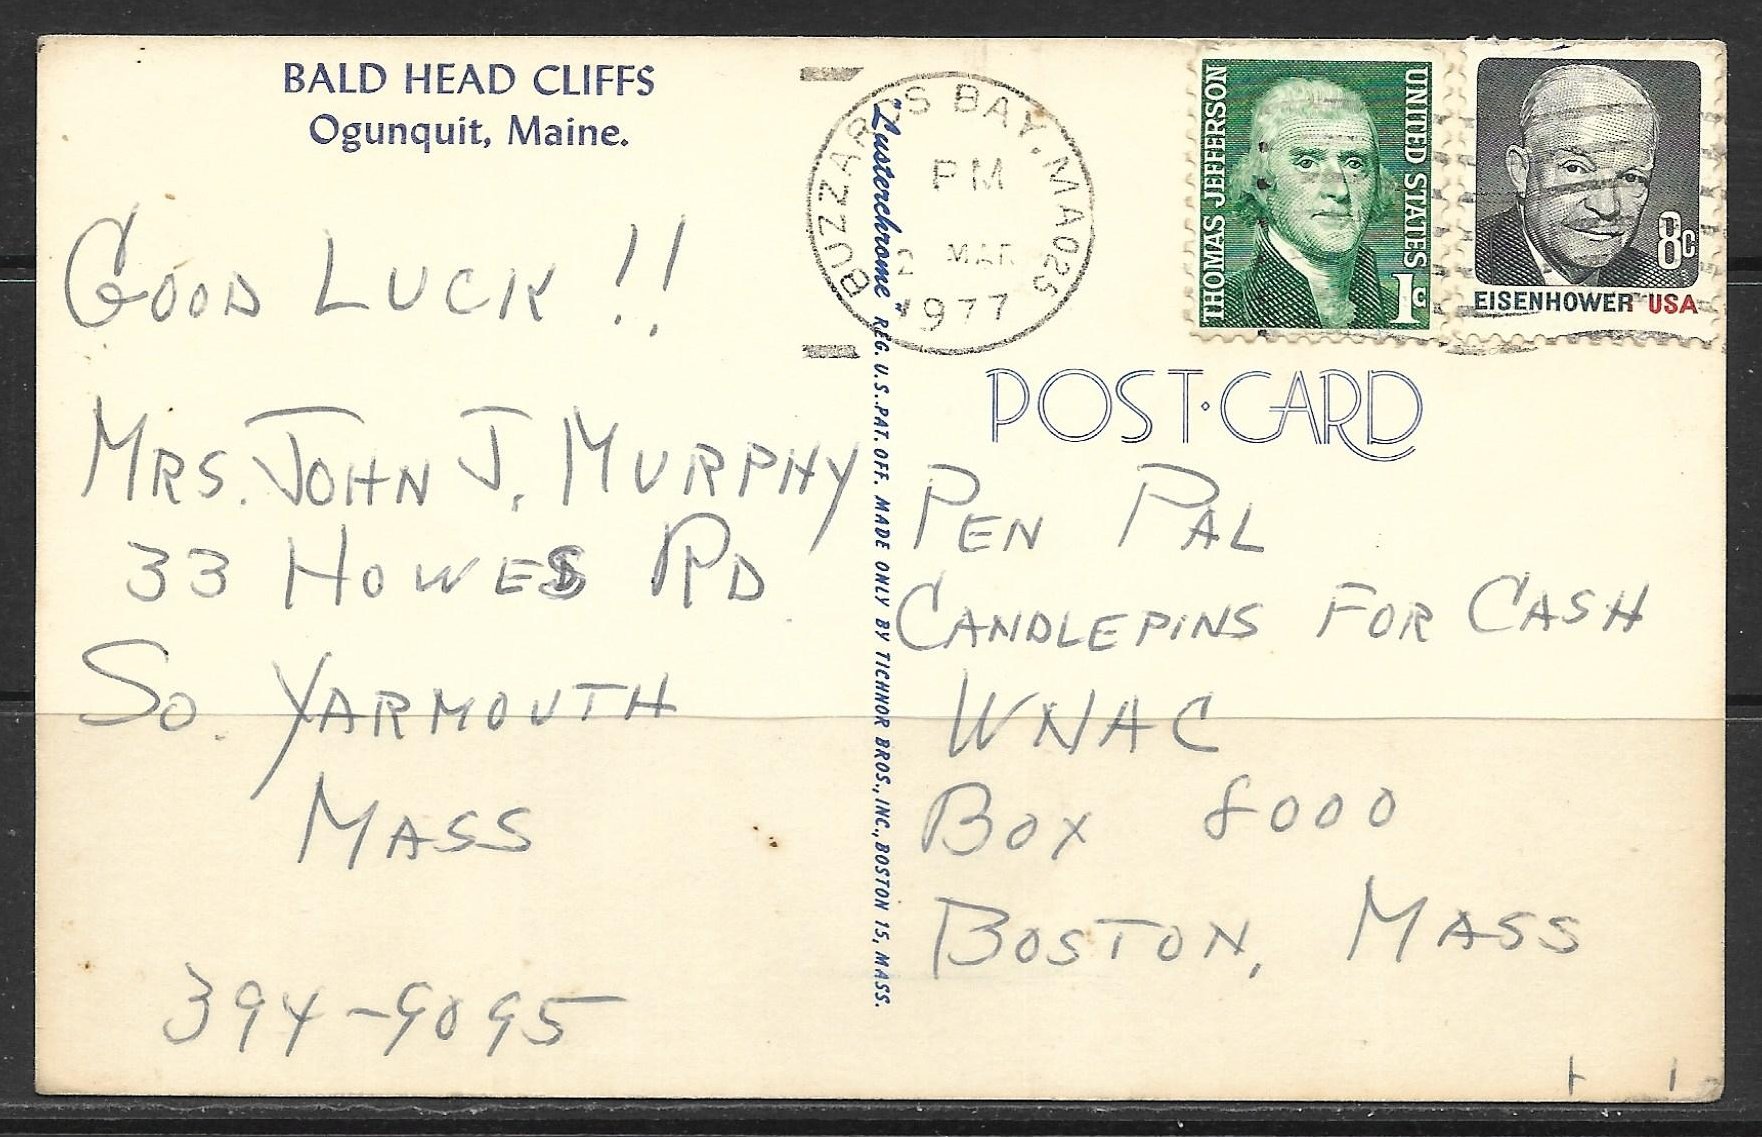 BALD HEAD CLIFFS
Ogunquit, Maine.
GOOD LUCK !!
MRS. JOHN J. MURPHY
33 HOWES RD
SO. YARMOUTH
MASS
394-9095
"Lusterchrome" REG. U.S. PAT. OFF. MADE ONLY BY TICHNOR BROS., INC., BOSTON 15, MASS.
BUZZARDS BAY, MA 025
PM
2 MAR
1977
THOMAS JEFFERSON
UNITED STATES
1c
8c
EISENHOWER USA
POST·CARD
PEN PAL
CANDLEPINS FOR CASH
WNAC
BOX 8000
BOSTON, MASS